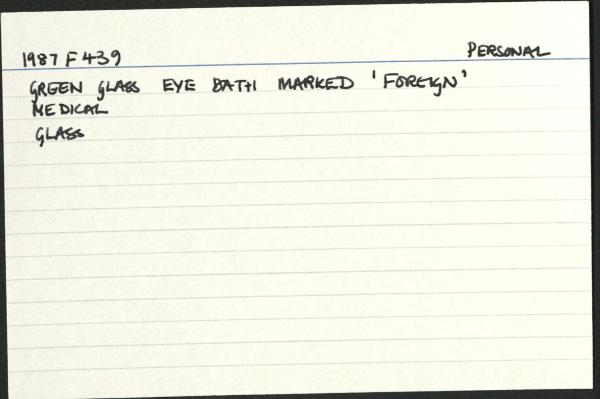 1987 F 439 PERSONAL
GREEN GLASS EYE BATH MARKED 'FOREIGN'
MEDICAL
GLASS